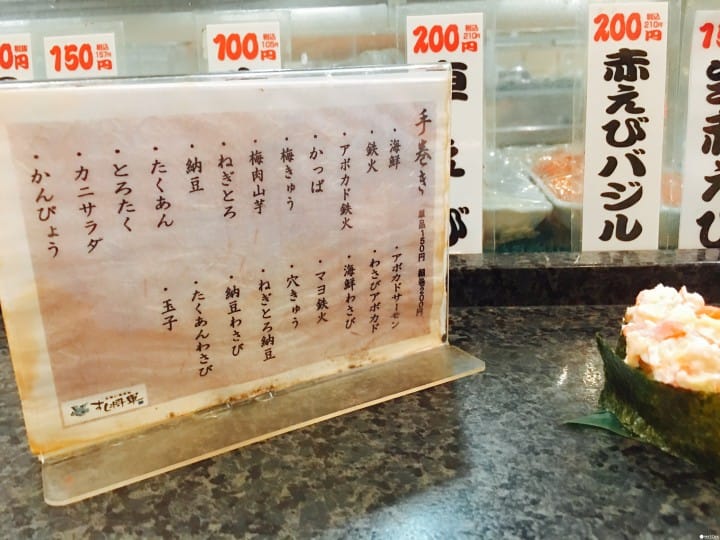 150 税込157円
円
100 税込105円
200 税込210円
200 税込210円
赤えびバジル
赤えび
手巻き 単品150円
・海鮮
・鉄火
・アボカド鉄火
・かっぱ
・梅きゅう
・梅肉山芋
・ねぎとろ
・納豆
・たくあん
・とろたく
・カニサラダ
・かんぴょう
・アボカドサーモン
・わさびアボカド
・海鮮わさび
・マヨ鉄火
・穴きゅう
・ねぎとろ納豆
・納豆わさび
・たくあんわさび
・玉子